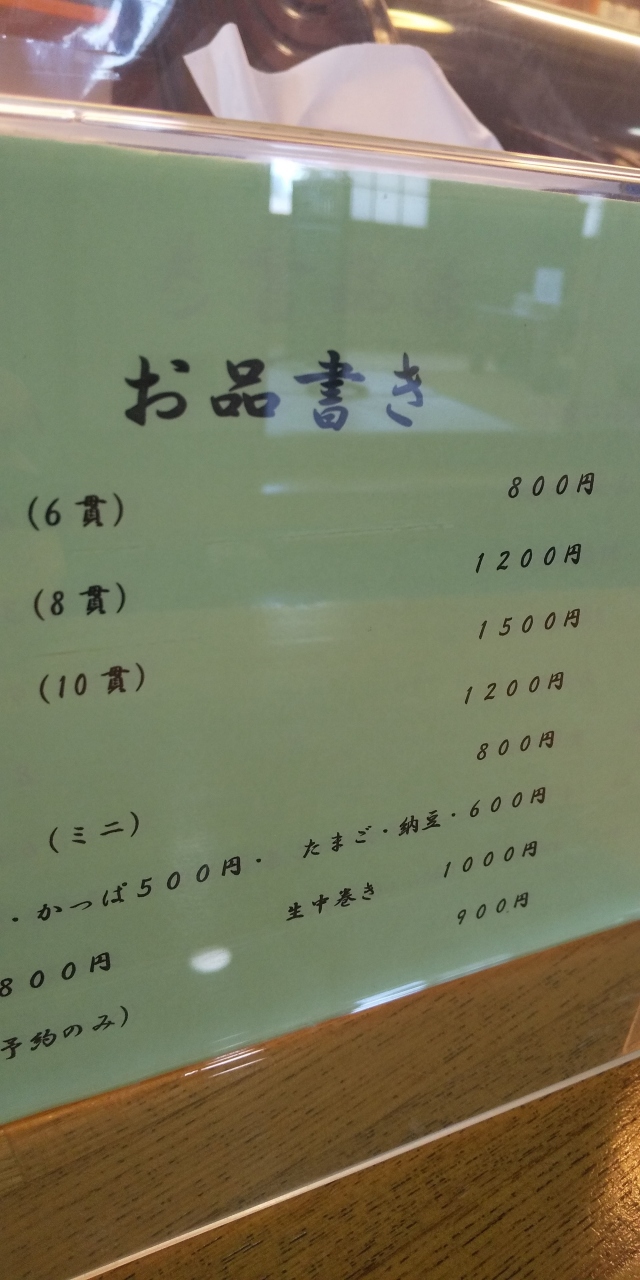 お品書き
(6貫) 800円
(8貫) 1200円
(10貫) 1500円
1200円
(ミニ) 800円
・かっぱ500円・ たまご・納豆・600円
800円 生中巻き 1000円
予約のみ) 900円